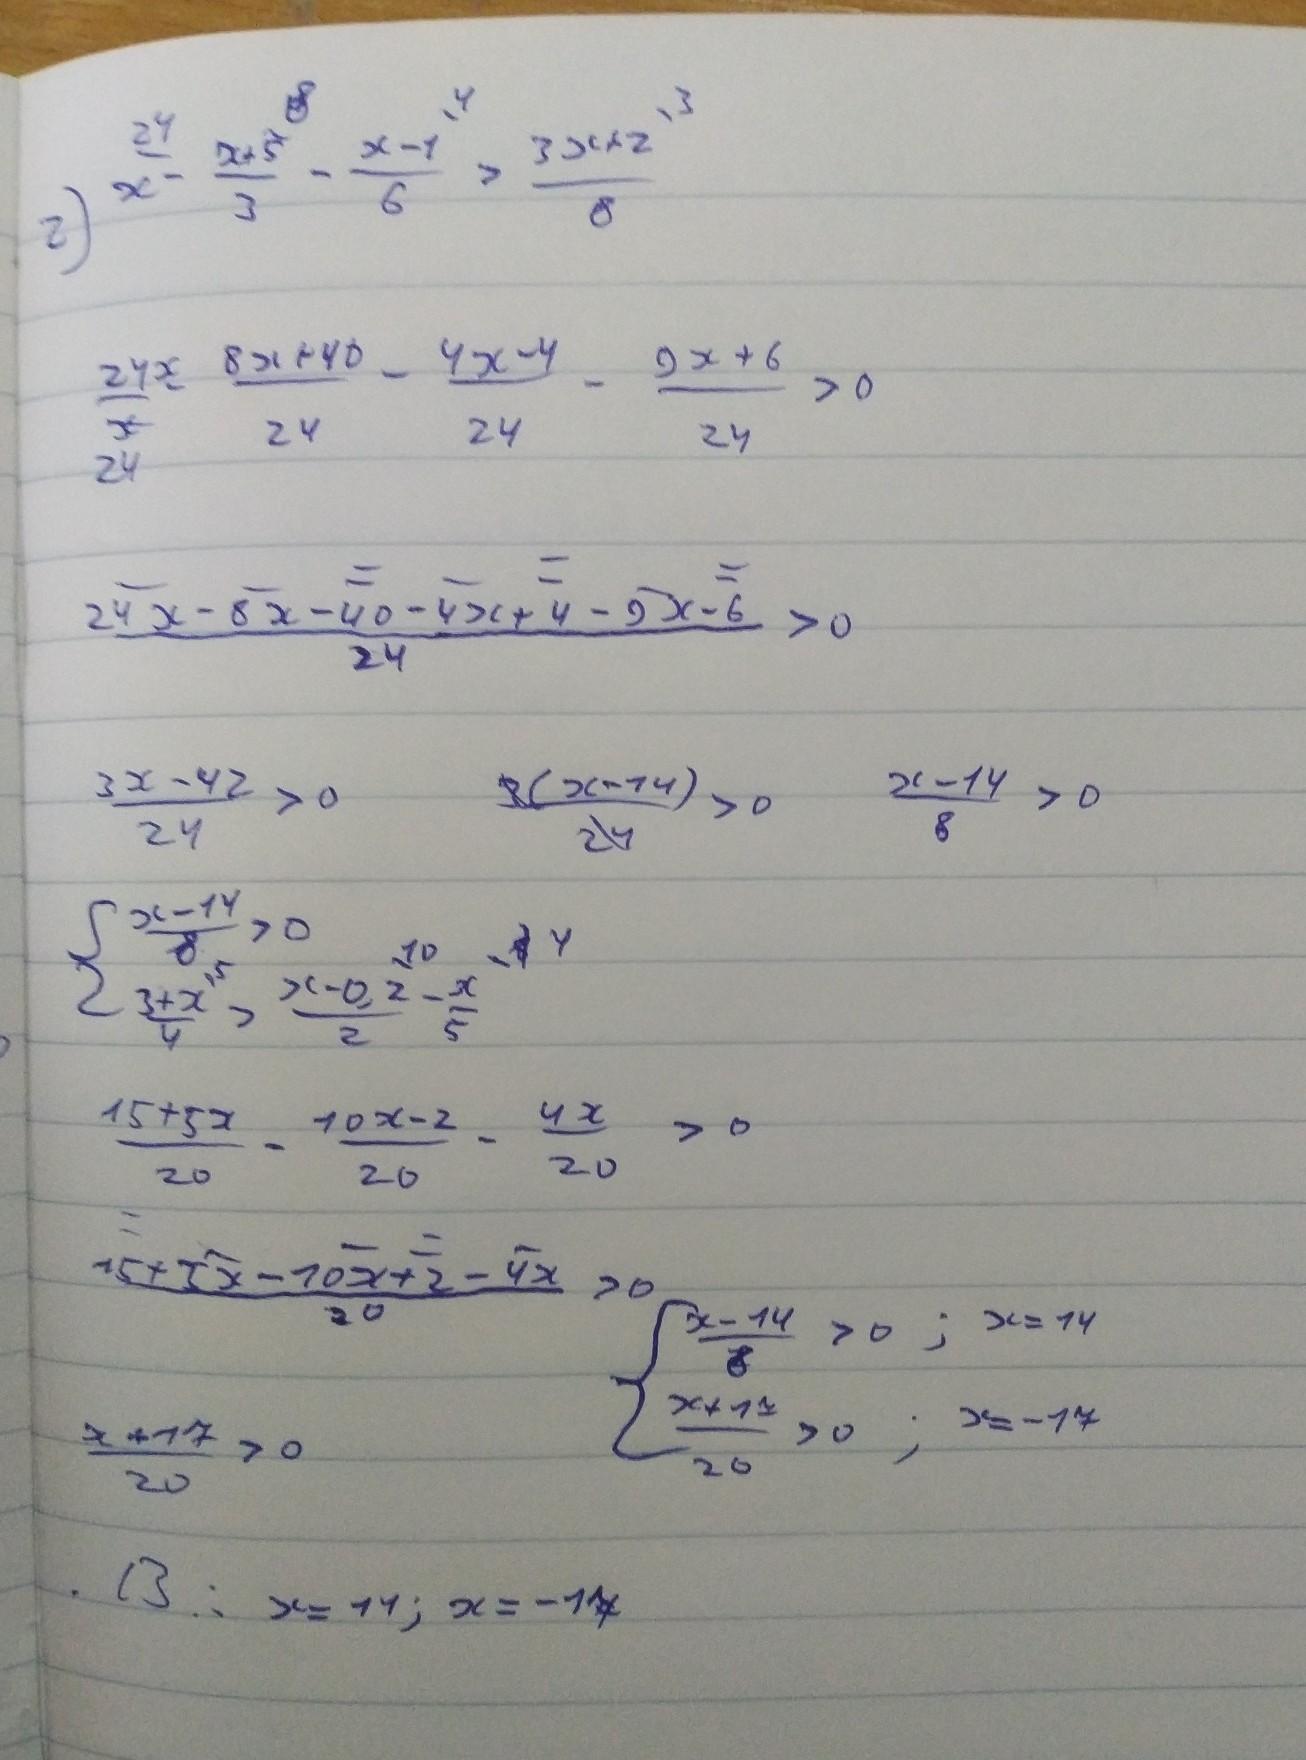 2) x - (x+5)/3 - (x-1)/6 > (3x+2)/8
24 8 4 3
24x/24 - (8x+40)/24 - (4x-4)/24 - (9x+6)/24 > 0
(24x-8x-40-4x+4-9x-6)/24 > 0
(3x-42)/24 > 0 3(x-14)/24 > 0 (x-14)/8 > 0
{ (x-14)/8 > 0
(3+x)/4 > (x-0,2)/2 - x/5
5 10 4
(15+5x)/20 - (10x-2)/20 - 4x/20 > 0
(15+5x-10x+2-4x)/20 > 0
{ (x-14)/8 > 0 ; x=14
(x+17)/20 > 0 ; x=-17
(x+17)/20 > 0
x=14; x=-17